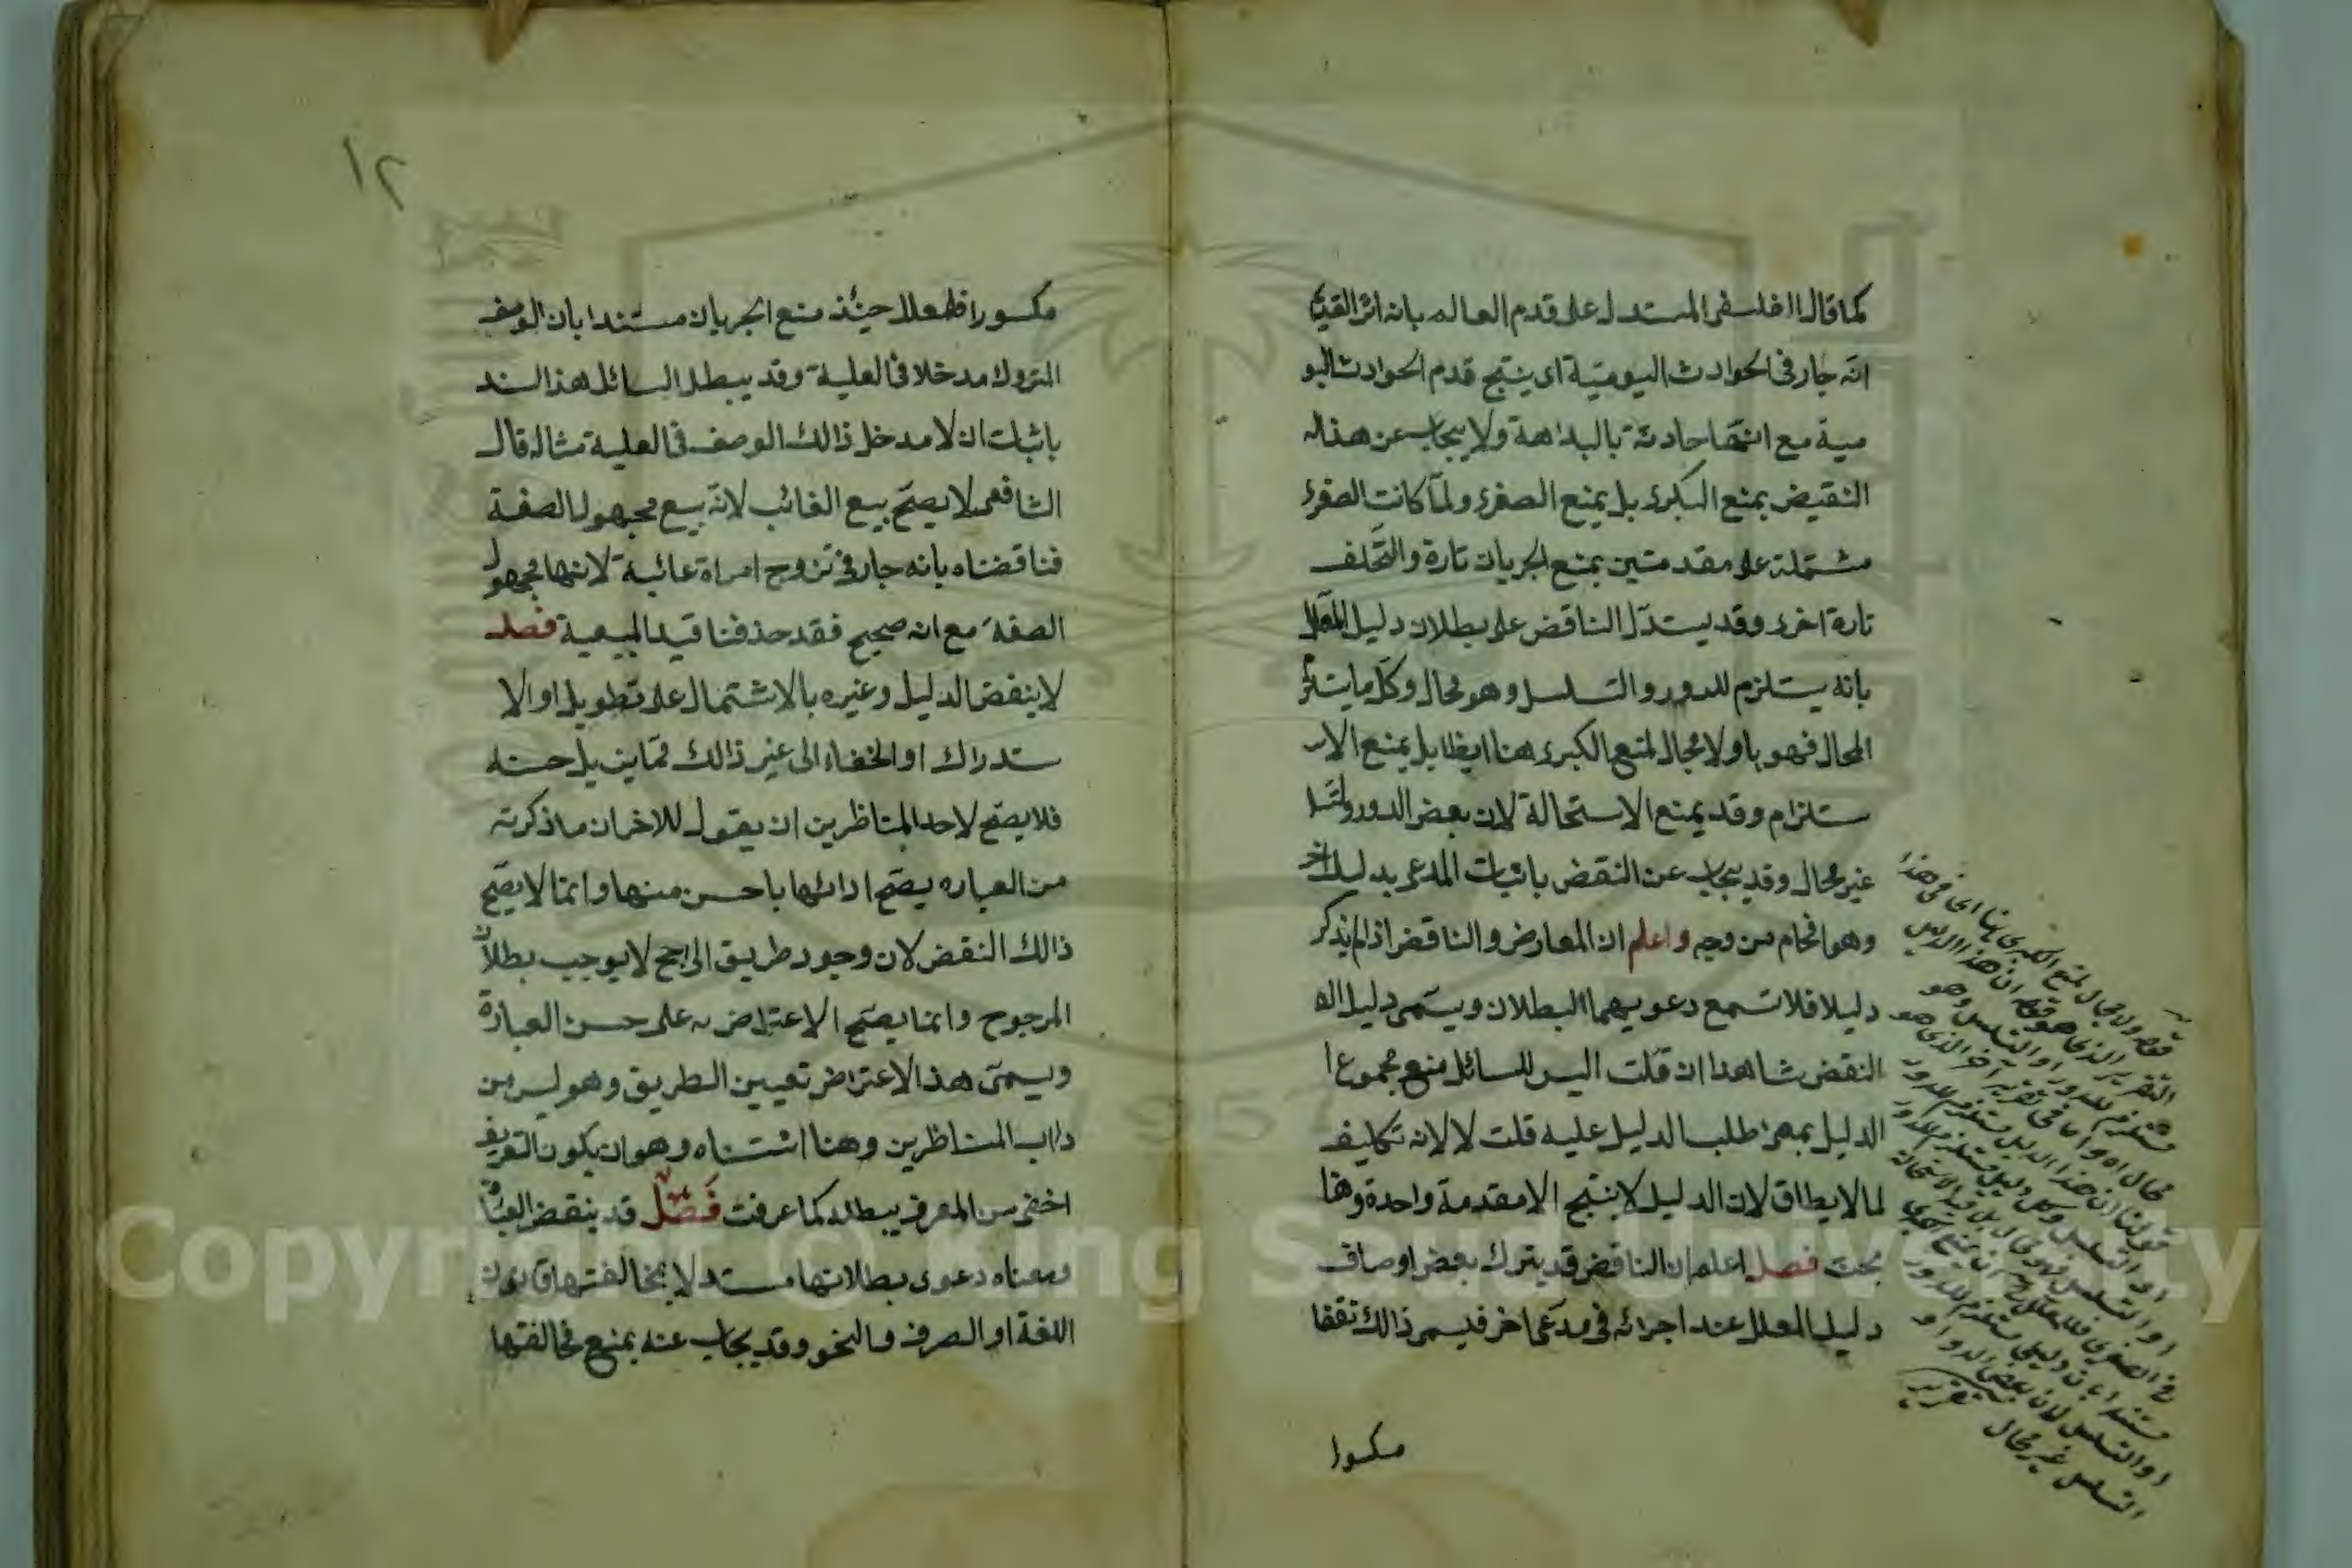 كما قال الفلسفى المستدل على قدم العالم بانه اثر القديم
انه جار فى الحوادث اليومية اى ينتج قدم الحوادث اليو
مية مع انها حادثة بالبداهة ولا يجاب عن هذا
النقيض بمنع الكبرى بل يمنع الصغرى ولما كانت الصغرى
مشتملة على مقدمتين يمنع الجريان تارة والتخلف
تارة اخرى وقد يستدل الناقض على بطلان دليل المعلل
بانه يستلزم للدور والتسلسل وهو محال وكل ما يستلزم
المحال فهو با ولا مجال لمنع الكبرى هنا ايظا بل يمنع الا
ستلزام وقد يمنع الاستحالة لان بعض الدور ولتسا
غير محال وقد يجاب عن النقض باثبات المدعى بدليل اخر
وهو افحام من وجه واعلم ان المعارض والناقض اذا لم يذكر
دليلا فلا تسمع دعويهما البطلان ويسمى دليل
النقض شاهدا ان قلت اليس للسائل منع مجموع
الدليل بمعنى طلب الدليل عليه قلت لا لانه تكليف
لما لا يطاق لان الدليل لا ينتج الا مقدمة واحدة وهنا
بحث فصل اعلم ان الناقض قد يترك بعض اوصاف
دليل المعلل عند اجرائه فى مدعى اخر فيسمى ذالك نقضا
مكسورا
قوله ولا مجال لمنع الكبرى هنا اى فى هذا
التقرير الذى هو قوله ان هذا الدليل
مستلزم للدور او التسلسل وهو
محال اه واما فى تقرير آخر الذى هو
قولنا ان هذا الدليل مستلزم للدور
او التسلسل وكل دليل مستلزم للدور
او التسلسل فهو محال بل قيد الاستحالة
فى الصغرى فللمعلل ان يمنع الكبرى
مستندا بان دليلى مستلزم للدور
او التسلسل لان بعض الدور او
التسلسل غير محال تقرير
١٢
مكسورا فللمعلل حينئذ منع الجريان مستندا بان الوصف
المتروك مدخلا فى العلية وقد يبطل السائل هذا السند
باثبات ان لا مدخل ذالك الوصف فى العلية مثاله قال
الشافعى لا يصح بيع الغائب لانه بيع مجهول الصفة
فناقضناه بانه جار فى تزوج امراة غائبة لانها مجهول
الصفة مع انه صحيح فقد حذفنا قيد المبيعية فصل
لا ينقض الدليل وغيره بالاشتمال على تطويل او الا
ستدراك او الخفاء الى غير ذالك مما يزيل حسنه
فلا يصح لاحد المتناظرين ان يقول للاخر ان ما ذكرته
من العباره يصح ادائها باحسن منها وانما لا يصح
ذالك النقض لان وجود طريق الراجح لا يوجب بطلان
المرجوح وانما يصح الاعتراض به على حسن العبارة
ويسمى هذا الاعتراض تعيين الطريق وهو ليس من
داب المناظرين وهنا استثناه وهو ان يكون التعريف
اخفى من المعرف يبطله كما عرفت فصل قد ينقض العبارة
ومعناه دعوى بطلانها مستدلا بمخالفتها قانون
اللغة او الصرف والنحو وقد يجاب عنه بمنع مخالفتها